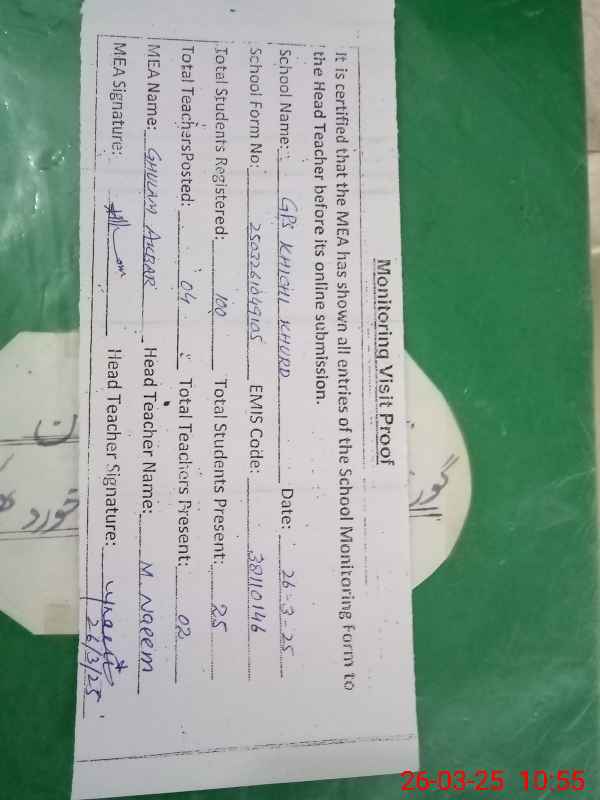 Monitoring Visit Proof
It is certified that the MEA has shown all entries of the School Monitoring Form to
the Head Teacher before its online submission.
School Name: GPS KHICHI KHURD Date: 26-3-25
School Form No: 2503261049105 EMIS Code: 38110146
Total Students Registered: 100 Total Students Present: 25
Total TeachersPosted: 04 Total Teachers Present: 02
MEA Name: GHULAM AKBAR Head Teacher Name: M. Naeem
MEA Signature: Head Teacher Signature:
26/3/25
خورد
26-03-25 10:55